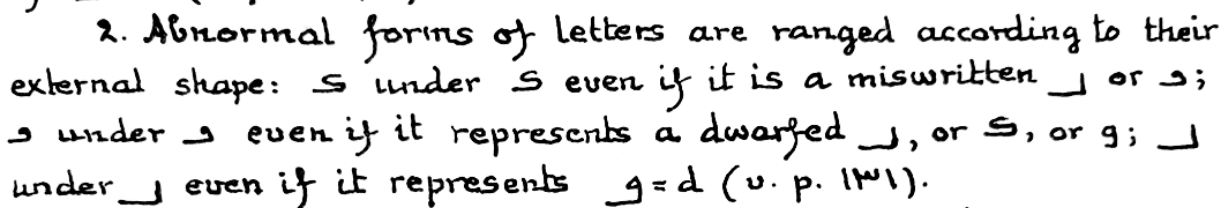 2. Abnormal forms of letters are ranged according to their
external shape: under even if it is a miswritten or ;
under even if it represents a dwarfed , or , or ;
under even if it represents = d (v. p. ١٣١).